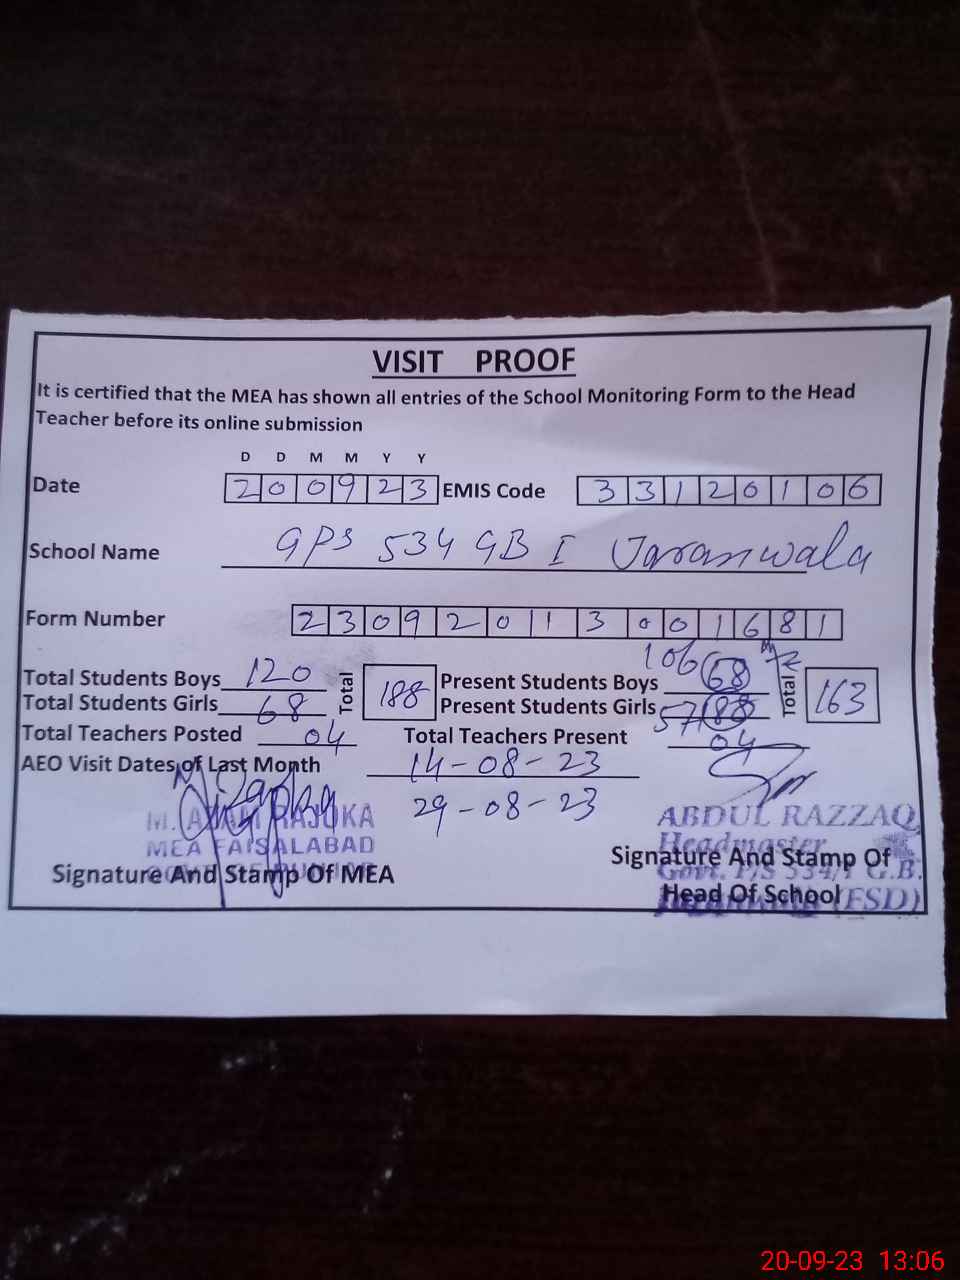 VISIT PROOF
It is certified that the MEA has shown all entries of the School Monitoring Form to the Head
Teacher before its online submission
D D M M Y Y
Date 2 0 0 9 2 3 EMIS Code 3 3 1 2 0 1 0 6
School Name GPS 534 GB I Jaranwala
Form Number 2 3 0 9 2 0 1 1 3 0 0 1 6 8 1
Total Students Boys 120 Total 188 Present Students Boys 106 68 Total 163
Total Students Girls 68 Present Students Girls 57 188
Total Teachers Posted 04 Total Teachers Present 04
AEO Visit Dates of Last Month 14-08-23
29-08-23
M. AZAM RAJOKA
MEA FAISALABAD
Signature And Stamp Of MEA
ABDUL RAZZAQ
Headmaster
Signature And Stamp Of
Govt. P/S 534/1 G.B.
Head Of School
(FSD)
20-09-23 13:06